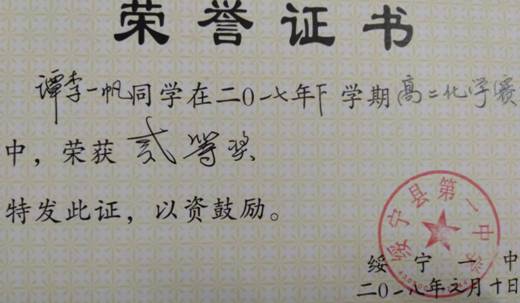 荣誉证书
谭李一帆同学在二〇一七年下学期高二化学竞赛
中，荣获贰等奖
特发此证，以资鼓励。
绥宁县第一中学
绥宁一中
二〇一八年元月十日